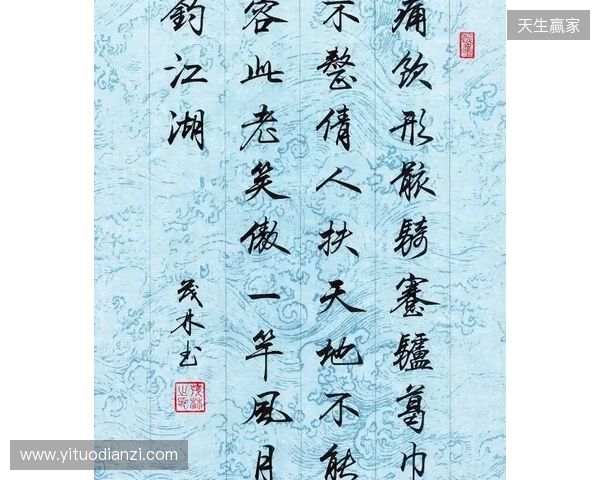 天生赢家
痛飲形骸騎蹇驢葛巾
不整倩人扶天地不能
容此老笑傲一竿風月
釣江湖
茂林书
www.yituodianzi.com